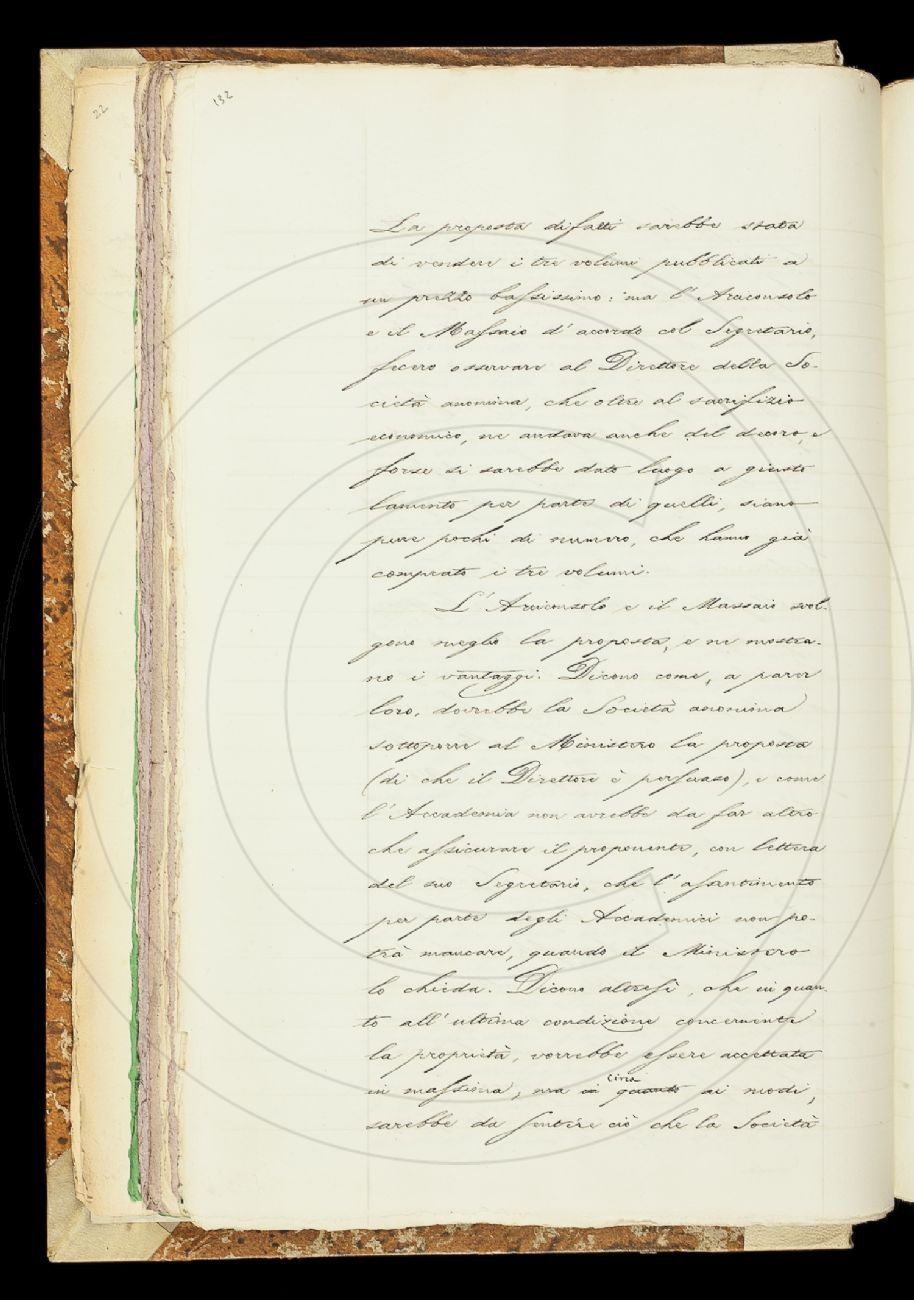 22
132
La proposta difatti sarebbe stata
di vendere i tre volumi pubblicati a
un prezzo bassissimo: ma l'Arciconsolo
e il Massaio d'acordo col Segretario,
fecero osservare al Direttore della So-
cietà anonima, che oltre al sacrifizio
economico, ne andava anche del decoro, e
forse si sarebbe dato luogo a giusto
lamento per parte di quelli, siano
pure pochi di numero, che hanno già
comprato i tre volumi.
L'Arciconsolo e il Massaio svol-
gono meglio la proposta, e ne mostra-
no i vantaggi. Dicono come, a parer
loro, dovrebbe la Società anonima
sottoporre al Ministero la proposta
(di che il Direttore è persuaso), e come
l'Accademia non avrebbe da far altro
che assicurare il proponente, con lettera
del suo Segretario, che l'assentimento
per parte degli Accademici non po-
trà mancare, quando il Ministero
lo chieda. Dicono altresì, che in quan-
to all'ultima condizione concernente
la proprietà, vorrebbe essere accettata
circa
in massima, ma in quanto ai modi,
sarebbe da sentire ciò che la Società